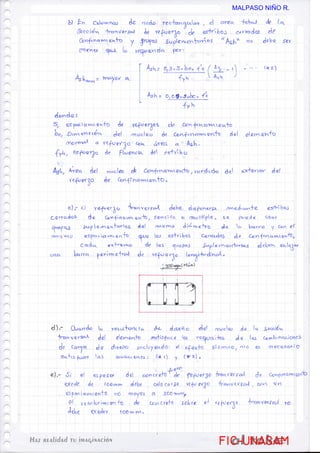 MALPASO NIÑO R.
b) En Columnas de nudo rectangular, el área total de la
Sección transversal de refuerzo de estribos cerrados de
Confinamiento y grapas suplementarias "Ash" no debe ser
menor que lo requerido por:
donde:
S, espaciamiento de refuerzos de Confinamiento
bc, Dimensión del núcleo de Confinamiento del elemento
normal a refuerzo con área a Ash.
fyh, esfuerzo de fluencia del estribo
Ag, área del núcleo de Confinamiento, medido del exterior del
refuerzo de Confinamiento.
c).- el refuerzo transversal debe disponerse mediante estribos
cerrados de Confinamiento, sencillo o múltiple, se puede usar
grapas suplementarias del mismo diámetro de la barra y con el
mismo espaciamiento que los estribos cerrados de Confinamiento,
Cada extremo de las grapas suplementarias deben enlazar
una barra perimetral de refuerzo longitudinal.
d).- Cuando la resistencia de diseño del núcleo de la sección
transversal del elemento satisface los requisitos de las combinaciones
de carga de diseño incluyendo el efecto sísmico, no es necesario
satisfacer las ecuaciones:
e).- Si el espesor del concreto fuera de refuerzo transversal de Confinamiento
excede de 100mm debe colocarse refuerzo transversal con un
espaciamiento no mayor a 300mm,
el recubrimiento de concreto sobre el refuerzo transversal no
debe exceder 100mm.
Haz realidad tu imaginación
FIC-UNASAM